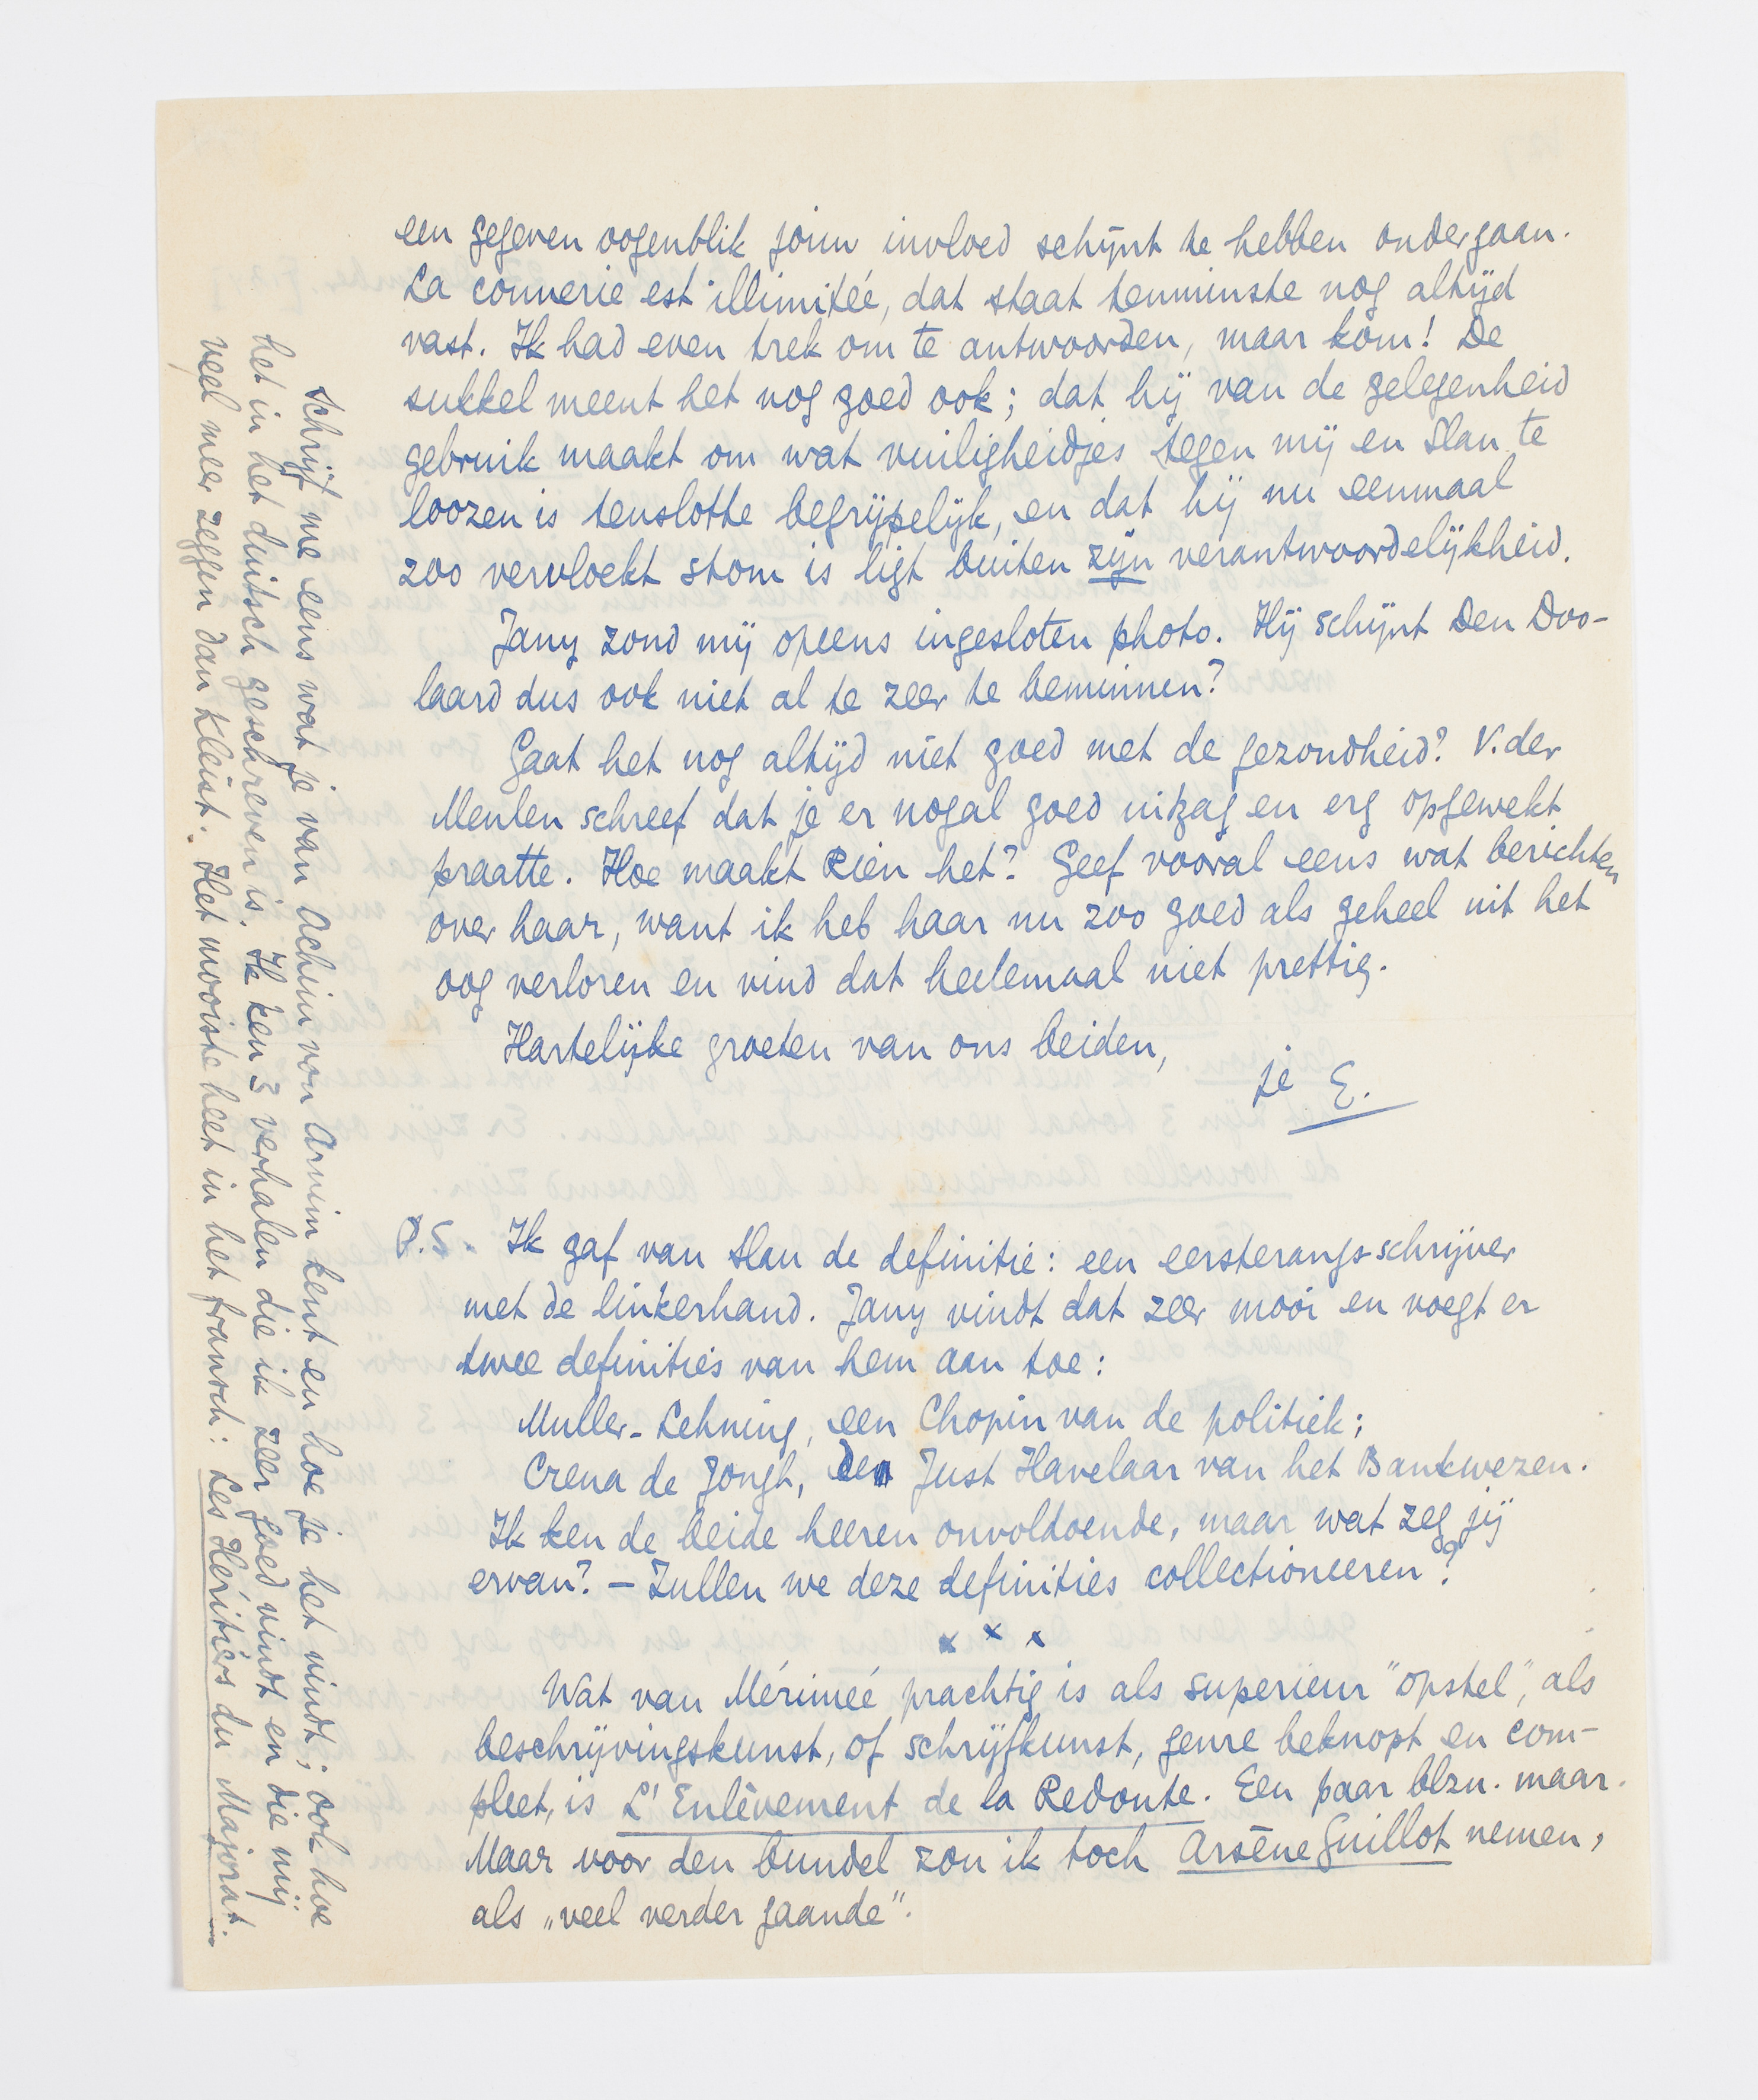 een gegeven oogenblik jouw invloed schijnt te hebben ondergaan.
La connerie est illimitée, dat staat tenminste nog altijd
vast. Ik had even trek om te antwoorden, maar kom! De
sukkel meent het nog goed ook; dat hij van de gelegenheid
gebruik maakt om wat vuiligheidjes tegen mij en Slau te
loozen is tenslotte begrijpelijk, en dat hij nu eenmaal
zoo vervloekt stom is ligt buiten zijn verantwoordelijkheid.
Jany zond mij opeens ingesloten photo. Hij schijnt Den Doo-
laard dus ook niet al te zeer te beminnen?
Gaat het nog altijd niet goed met de gezondheid? V. der
Meulen schreef dat je er nogal goed uitzag en erg opgewekt
praatte. Hoe maakt Rien het? Geef vooral eens wat berichten
over haar, want ik heb haar nu zoo goed als geheel uit het
oog verloren en vind dat heelemaal niet prettig.
Hartelijke groeten van ons beiden,
je E.
P.S. Ik gaf van Slau de definitie: een eersterangs-schrijver
met de linkerhand. Jany vindt dat zeer mooi en voegt er
twee definities van hem aan toe:
Muller-Lehning, een Chopin van de politiek;
Crena de Jongh, den Just Havelaar van het Bankwezen.
Ik ken de beide heeren onvoldoende, maar wat zeg jij
ervan? – Zullen we deze definities collectioneeren?
x x x
Wat van Mérimée prachtig is als superieur "opstel", als
beschrijvingskunst, of schrijfkunst, genre beknopt en com-
pleet, is L'Enlèvement de la Redoute. Een paar blzn. maar.
Maar voor den bundel zou ik toch Arsène Guillot nemen,
als „veel verder gaande".
Schrijf me eens wat je van Achim von Arnim kent en hoe je het vindt; ook hoe
het in het duitsch geschreven is. Ik ken 3 verhalen die ik zeer goed vindt en die mij
veel meer zeggen dan Kleist. Het mooiste heet in het fransch: Les Héritiers du Majorat.